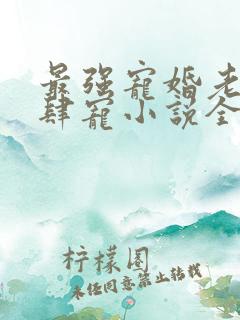 最强寵婚老
肆寵小説全
柠檬圈
未经同意禁止转载